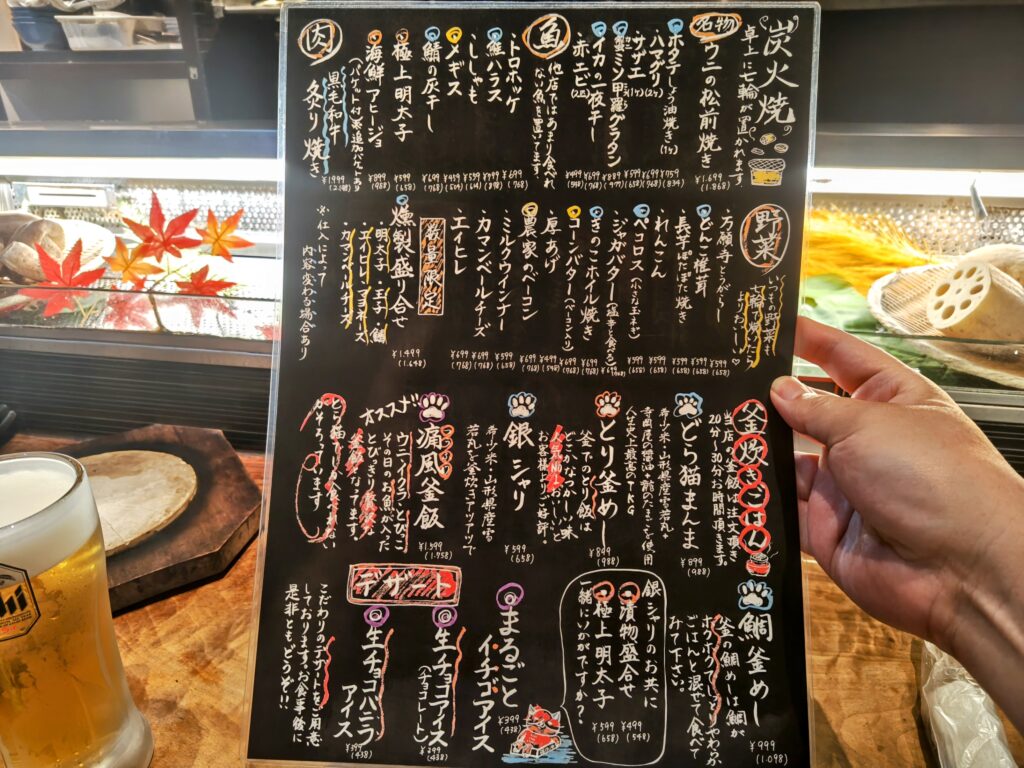 炭火焼
卓上に七輪が置かれます。
名物
ウニの松前焼き
¥1.699
(1.868)
・ホタテしょうゆ焼き(1ヶ)
¥759
(834)
・ハマグリ(2ヶ)
¥699
(768)
・サザエ(1ヶ)
¥599
(658)
・蟹ミソ甲羅グラタン
・イカの一夜干し
・赤エビ(2匹)
魚
他店ではあまり食べれ
ない魚を置いてます。
・トロホッケ
¥699
(768)
・鮭ハラス
・ししゃも
・メギス
・鯖の灰干し
¥699
(768)
・極上明太子
¥599
(658)
・海鮮アヒージョ
¥899
(988)
(バケット付 ※追加バケットあり)
肉
黒毛和牛
炙り焼き
¥1999
野菜
いつもの野菜も
七輪で焼いたら
よりおいしい♡
・万願寺とうがらし
¥599
(658)
・どんこ椎茸
¥599
(658)
・長芋ぽたぽた焼き
¥599
(658)
・れんこん
¥599
(658)
・ペコロス(小さな玉ネギ)
¥599
(658)
・ジャガバター(塩辛と食べる)
・きのこホイル焼き
¥599
(658)
・コーンバター(ベーコン入り)
¥699
(768)
・厚あげ
¥499
(548)
・農家のベーコン
¥699
(768)
・ミルクウインナー
¥599
(658)
・カマンベールチーズ
¥699
(768)
・エイヒレ
¥699
(768)
数量限定
・燻製盛り合せ
¥1.499
(1.648)
明太子・玉子・鯖
カマンベールチーズ
※仕入によって
内容変わる場合あり
釜炊きごはん
当店の釜飯はご注文頂き
20分〜30分お時間頂きます。
どら猫まんま
¥899
(988)
希少米・山形県産雪若丸+
寺岡家の醤油+朝のたまごを使用
人生史上最高のTKG
とり釜めし
¥899
(988)
釜下のとり飯は
どこかなつかしい味
人気No.1おいしいと
お客様よりご好評。
銀シャリ
¥599
(658)
希少米・山形県産雪
若丸を釜炊きアツアツで
オススメ!
漏風釜飯
¥1.599
(1.758)
ウニ・イクラ・とびっこ
その日のお魚が入った
とびっきり贅沢な
釜飯になってます。
どら猫でしか食べれない
がそろっています
鯛釜めし
¥999
(1.098)
釜の鯛めしは鯛が
ホクホクでしっとりやわらか
ごはんと混ぜて食べて
みて下さい。
銀シャリのお共に
・漬物盛合せ
¥499
(548)
・極上明太子
¥599
(658)
一緒にいかがですか?
デザート
・まるごと
イチゴアイス
¥399
(438)
・生チョコアイス
(チョコレート)
¥399
(438)
・生チョコバニラ
アイス
¥399
(438)
こだわりのデザートをご用意
しております。お食事後に
是非ともどうぞ!!